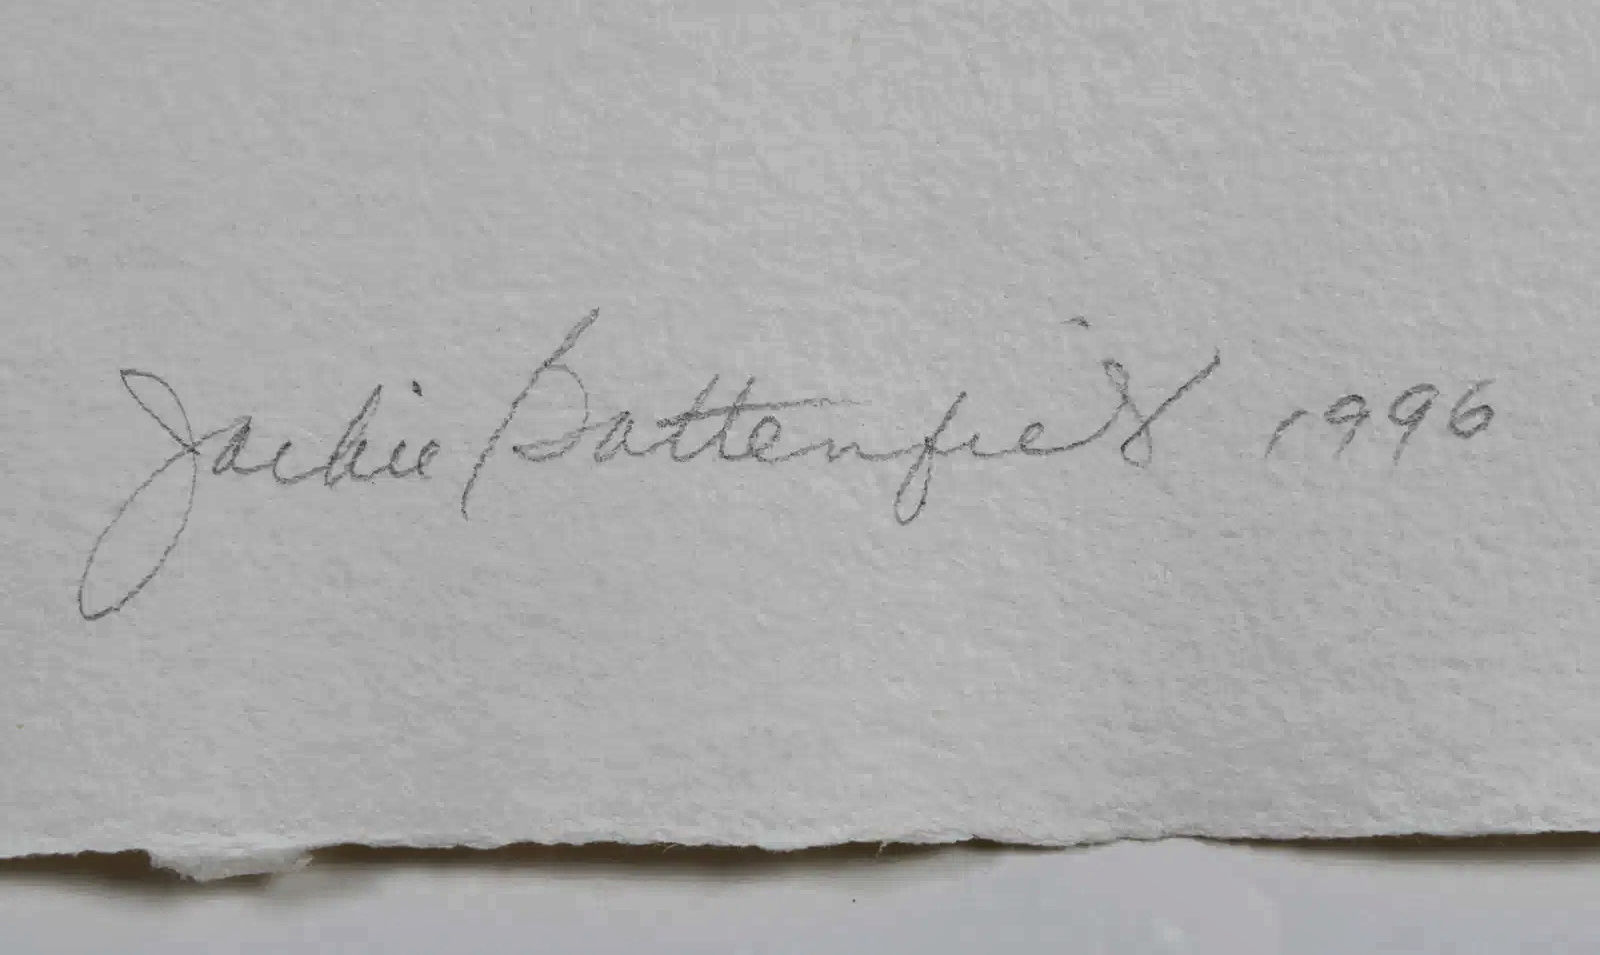 Jackie Battenfield 1996